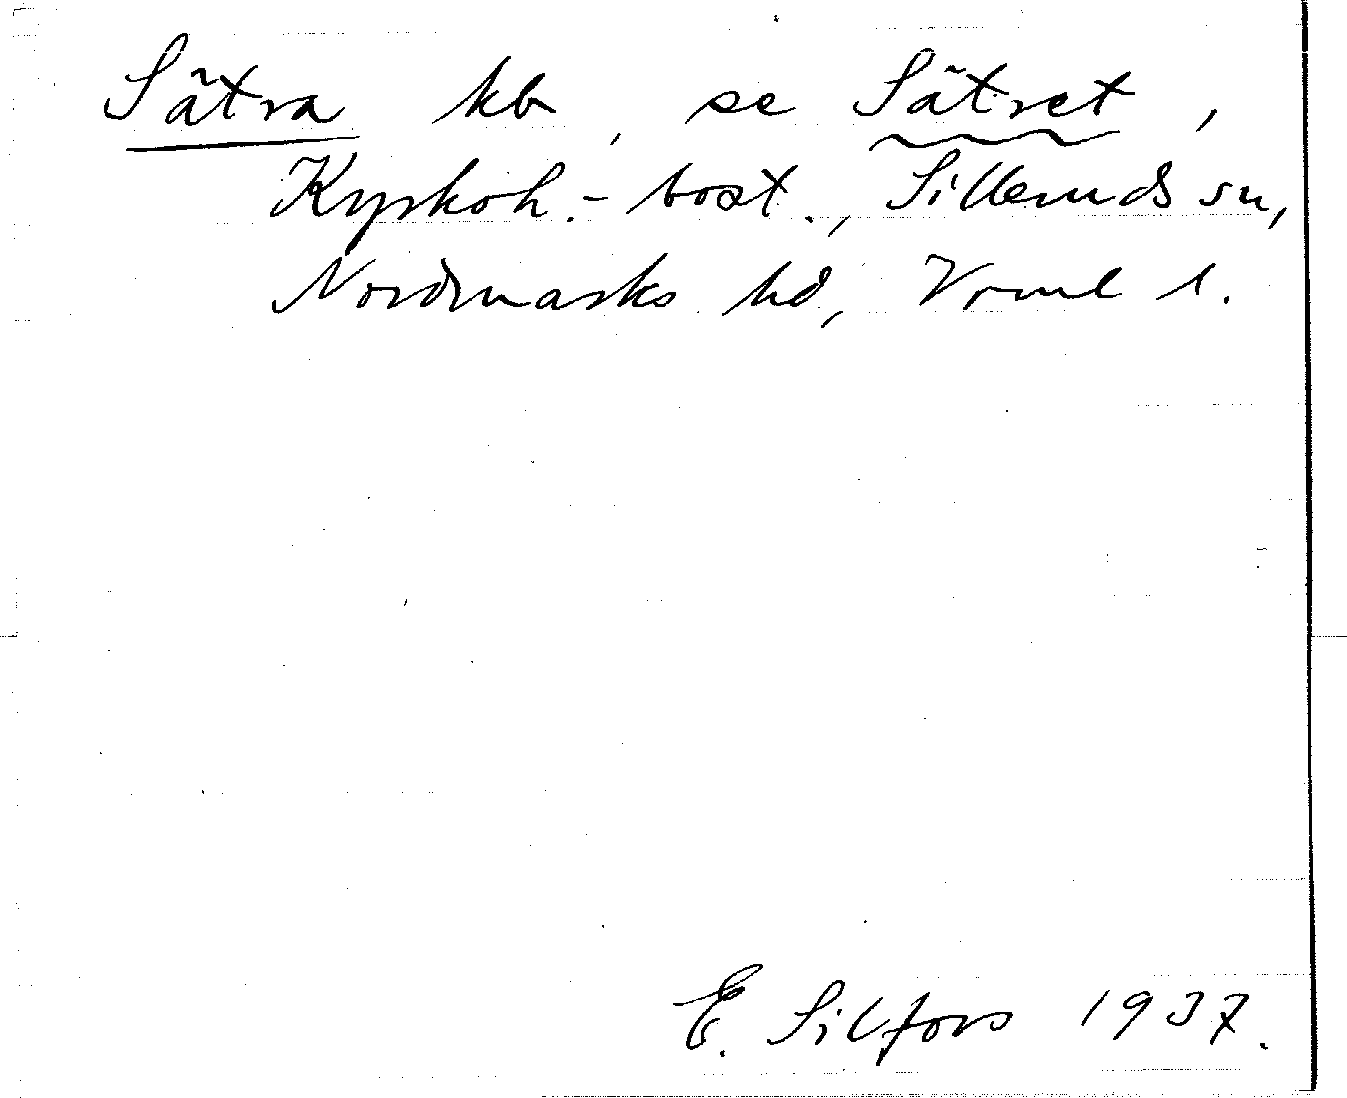 Sätra kb, se Sätret,
Kyrkoh.-bost., Silleruds sn,
Nordmarks hd, Vrml l.
E. Silfors 1937.